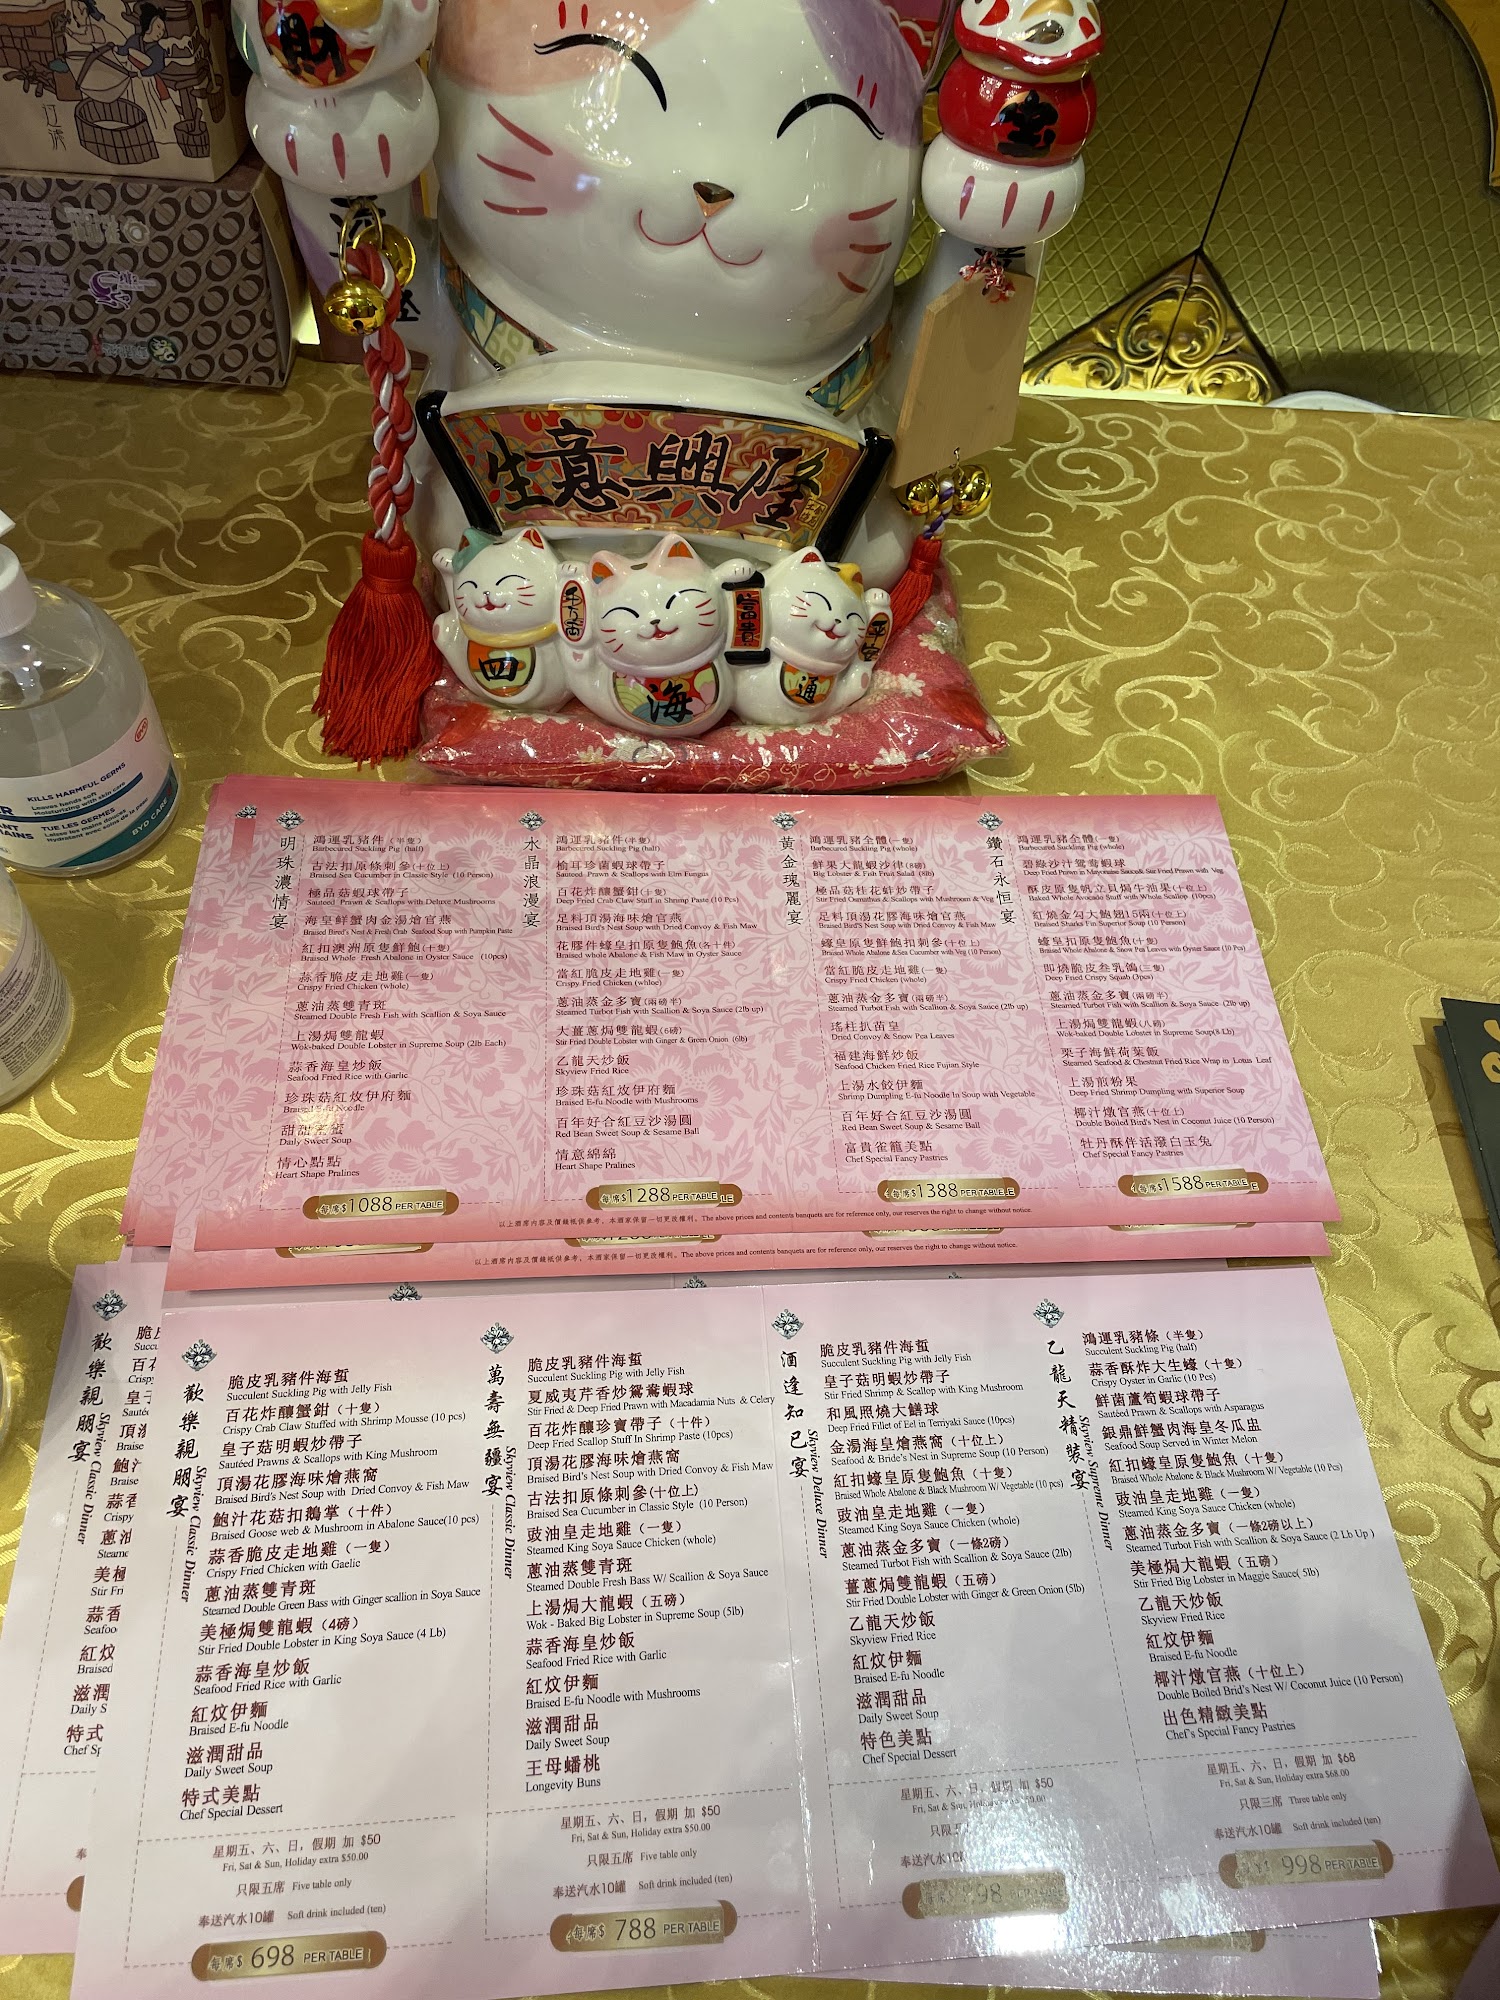 財
生意興隆
四
海
通
富貴
KILLS HARMFUL GERMS
Leaves hands soft
Moisturizing with skin care
TUE LES GERMES
BYD CARE
明珠濃情宴
鴻運乳豬件 (半隻)
Barbecured Suckling Pig (half)
古法扣原條刺參(十位上)
Braised Sea Cucumber in Classic Style (10 Person)
極品菇蝦球帶子
Sauteed Prawn & Scallops with Deluxe Mushrooms
海皇鮮蟹肉金湯燴官燕
Braised Bird's Nest & Fresh Crab Seafood Soup with Pumpkin Paste
紅扣澳洲原隻鮮鮑(十隻)
Braised Whole Fresh Abalone in Oyster Sauce (10pcs)
蒜香脆皮走地雞(一隻)
Crispy Fried Chicken (whole)
蔥油蒸雙青斑
Steamed Double Fresh Fish with Scallion & Soya Sauce
上湯焗雙龍蝦
Wok-baked Double Lobster in Supreme Soup (2lb Each)
蒜香海皇炒飯
Seafood Fried Rice with Garlic
珍珠菇紅炆伊府麵
Braised E-fu Noodle
甜甜蜜蜜
Daily Sweet Soup
情心點點
Heart Shape Pralines
每席$1088 PER TABLE
水晶浪漫宴
鴻運乳豬件(半隻)
Barbecured Suckling Pig (half)
榆耳珍菌蝦球帶子
Sauteed Prawn & Scallops with Elm Fungus
百花炸釀蟹鉗(十隻)
Deep Fried Crab Claw Stuff in Shrimp Paste (10 Pcs)
足料頂湯海味燴官燕
Braised Bird's Nest Soup with Dried Convoy & Fish Maw
花膠件蠔皇扣原隻鮑魚(各十件)
Braised whole Abalone & Fish Maw in Oyster Sauce
當紅脆皮走地雞(一隻)
Crispy Fried Chicken (whloe)
蔥油蒸金多寶(兩磅半)
Steamed Turbot Fish with Scallion & Soya Sauce (2lb up)
大薑蔥焗雙龍蝦(6磅)
Stir Fried Double Lobster with Ginger & Green Onion (6lb)
乙龍天炒飯
Skyview Fried Rice
珍珠菇紅炆伊府麵
Braised E-fu Noodle with Mushrooms
百年好合紅豆沙湯圓
Red Bean Sweet Soup & Sesame Ball
情意綿綿
Heart Shape Pralines
每席$1288 PER TABLE
黃金瑰麗宴
鴻運乳豬全體(一隻)
Barbecured Suckling Pig (whole)
鮮果大龍蝦沙律(8磅)
Big Lobster & Fish Fruit Salad (8lb)
極品菇桂花蚌炒帶子
Stir Fried Osmuthus & Scallops with Mushroom & Veg
足料頂湯花膠海味燴官燕
Braised Bird's Nest Soup with Dried Convoy & Fish Maw
蠔皇原隻鮮鮑扣刺參(十位上)
Braised Whole Abalone &Sea Cucumber with Veg (10 Person)
當紅脆皮走地雞(一隻)
Crispy Fried Chicken (whole)
蔥油蒸金多寶(兩磅半)
Steamed Turbot Fish with Scallion & Soya Sauce (2lb up)
瑤柱扒苗皇
Dried Convoy & Snow Pea Leaves
福建海鮮炒飯
Seafood Chicken Fried Rice Fujian Style
上湯水餃伊麵
Shrimp Dumpling E-fu Noodle In Soup with Vegetable
百年好合紅豆沙湯圓
Red Bean Sweet Soup & Sesame Ball
富貴雀籠美點
Chef Special Fancy Pastries
每席$1388 PER TABLE
鑽石永恒宴
鴻運乳豬全體(一隻)
Barbecured Suckling Pig (whole)
碧綠沙汁鴛鴦蝦球
Deep Fried Prawn in Mayonnaise Sauce& Stir Fried Prawn with Veg
酥皮原隻帆立貝焗牛油果(十位上)
Baked Whole Avocado Stuff with Whole Scallop (10pcs)
紅燒金勾大鮑翅15兩(十位上)
Braised Sharks Fin Superior Soup (10 Person)
蠔皇扣原隻鮑魚(十隻)
Braised Whole Abalone & Snow Pea Leaves with Oyster Sauce (10 Pcs)
即燒脆皮叁乳鴿(三隻)
Deep Fried Crispy Squab (3pcs)
蔥油蒸金多寶(兩磅半)
Steamed Turbot Fish with Scallion & Soya Sauce (2lb up)
上湯焗雙龍蝦(八磅)
Wok-baked Double Lobster in Supreme Soup(8 Lb)
栗子海鮮荷葉飯
Steamed Seafood & Chestnut Fried Rice Wrap in Lotus Leaf
上湯煎粉果
Deep Fried Shrimp Dumpling with Superior Soup
椰汁燉官燕(十位上)
Double Boiled Bird's Nest in Coconut Juice (10 Person)
牡丹酥伴活潑白玉兔
Chef Special Fancy Pastries
每席$1588 PER TABLE
以上酒席內容及價錢祇供參考, 本酒家保留一切更改權利。The above prices and contents banquets are for reference only, our reserves the right to change without notice.
以上酒席內容及價錢祇供參考, 本酒家保留一切更改權利。The above prices and contents banquets are for reference only, our reserves the right to change without notice.
歡樂親朋宴
Skyview Classic Dinner
歡樂親朋宴
Skyview Classic Dinner
脆皮乳豬件海蜇
Succulent Suckling Pig with Jelly Fish
百花炸釀蟹鉗 (十隻)
Crispy Crab Claw Stuffed with Shrimp Mousse (10 pcs)
皇子菇明蝦炒帶子
Sautéed Prawns & Scallops with King Mushroom
頂湯花膠海味燴燕窩
Braised Bird's Nest Soup with Dried Convoy & Fish Maw
鮑汁花菇扣鵝掌 (十件)
Braised Goose web & Mushroom in Abalone Sauce(10 pcs)
蒜香脆皮走地雞 (一隻)
Crispy Fried Chicken with Gaelic
蔥油蒸雙青斑
Steamed Double Green Bass with Ginger scallion in Soya Sauce
美極焗雙龍蝦 (4磅)
Stir Fried Double Lobster in King Soya Sauce (4 Lb)
蒜香海皇炒飯
Seafood Fried Rice with Garlic
紅炆伊麵
Braised E-fu Noodle
滋潤甜品
Daily Sweet Soup
特式美點
Chef Special Dessert
星期五、六、日, 假期 加 $50
Fri, Sat & Sun, Holiday extra $50.00
只限五席 Five table only
奉送汽水10罐 Soft drink included (ten)
每席$ 698 PER TABLE
萬壽無疆宴
Skyview Classic Dinner
脆皮乳豬件海蜇
Succulent Suckling Pig with Jelly Fish
夏威夷芹香炒鴛鴦蝦球
Stir Fried & Deep Fried Prawn with Macadamia Nuts & Celery
百花炸釀珍寶帶子 (十件)
Deep Fried Scallop Stuff In Shrimp Paste (10pcs)
頂湯花膠海味燴燕窩
Braised Bird's Nest Soup with Dried Convoy & Fish Maw
古法扣原條刺參(十位上)
Braised Sea Cucumber in Classic Style (10 Person)
豉油皇走地雞 (一隻)
Steamed King Soya Sauce Chicken (whole)
蔥油蒸雙青斑
Steamed Double Fresh Bass W/ Scallion & Soya Sauce
上湯焗大龍蝦 (五磅)
Wok - Baked Big Lobster in Supreme Soup (5lb)
蒜香海皇炒飯
Seafood Fried Rice with Garlic
紅炆伊麵
Braised E-fu Noodle with Mushrooms
滋潤甜品
Daily Sweet Soup
王母蟠桃
Longevity Buns
星期五、六、日, 假期 加 $50
Fri, Sat & Sun, Holiday extra $50.00
只限五席 Five table only
奉送汽水10罐 Soft drink included (ten)
每席$ 788 PER TABLE
酒逢知己宴
Skyview Deluxe Dinner
脆皮乳豬件海蜇
Succulent Suckling Pig with Jelly Fish
皇子菇明蝦炒帶子
Stir Fried Shrimp & Scallop with King Mushroom
和風照燒大鱔球
Deep Fried Fillet of Eel in Terriyaki Sauce (10pcs)
金湯海皇燴燕窩 (十位上)
Seafood & Bride's Nest in Supreme Soup (10 Person)
紅扣蠔皇原隻鮑魚 (十隻)
Braised Whole Abalone & Black Mushroom W/ Vegetable (10 pcs)
豉油皇走地雞 (一隻)
Steamed King Soya Sauce Chicken (whole)
蔥油蒸金多寶 (一條2磅)
Steamed Turbot Fish with Scallion & Soya Sauce (2lb)
薑蔥焗雙龍蝦 (五磅)
Stir Fried Double Lobster with Ginger & Green Onion (5lb)
乙龍天炒飯
Skyview Fried Rice
紅炆伊麵
Braised E-fu Noodle
滋潤甜品
Daily Sweet Soup
特色美點
Chef Special Dessert
星期五、六、日, 假期 加 $50
Fri, Sat & Sun,
只限
奉送汽水10
98
乙龍天精裝宴
Skyview Supreme Dinner
鴻運乳豬條 (半隻)
Succulent Suckling Pig (half)
蒜香酥炸大生蠔 (十隻)
Crispy Oyster in Garlic (10 Pcs)
鮮菌蘆筍蝦球帶子
Sautéed Prawn & Scallops with Asparagus
銀鼎鮮蟹肉海皇冬瓜盅
Seafood Soup Served in Winter Melon
紅扣蠔皇原隻鮑魚 (十隻)
Braised Whole Abalone & Black Mushroom W/ Vegetable (10 Pcs)
豉油皇走地雞 (一隻)
Steamed King Soya Sauce Chicken (whole)
蔥油蒸金多寶 (一條2磅以上)
Steamed Turbot Fish with Scallion & Soya Sauce (2 Lb Up )
美極焗大龍蝦 (五磅)
Stir Fried Big Lobster in Maggie Sauce( 5lb)
乙龍天炒飯
Skyview Fried Rice
紅炆伊麵
Braised E-fu Noodle
椰汁燉官燕 (十位上)
Double Boiled Brid's Nest W/ Coconut Juice (10 Person)
出色精緻美點
Chef's Special Fancy Pastries
星期五、六、日, 假期 加 $68
Fri, Sat & Sun, Holiday extra $68.00
只限三席 Three table only
奉送汽水10罐 Soft drink included (ten)
998 PER TABLE